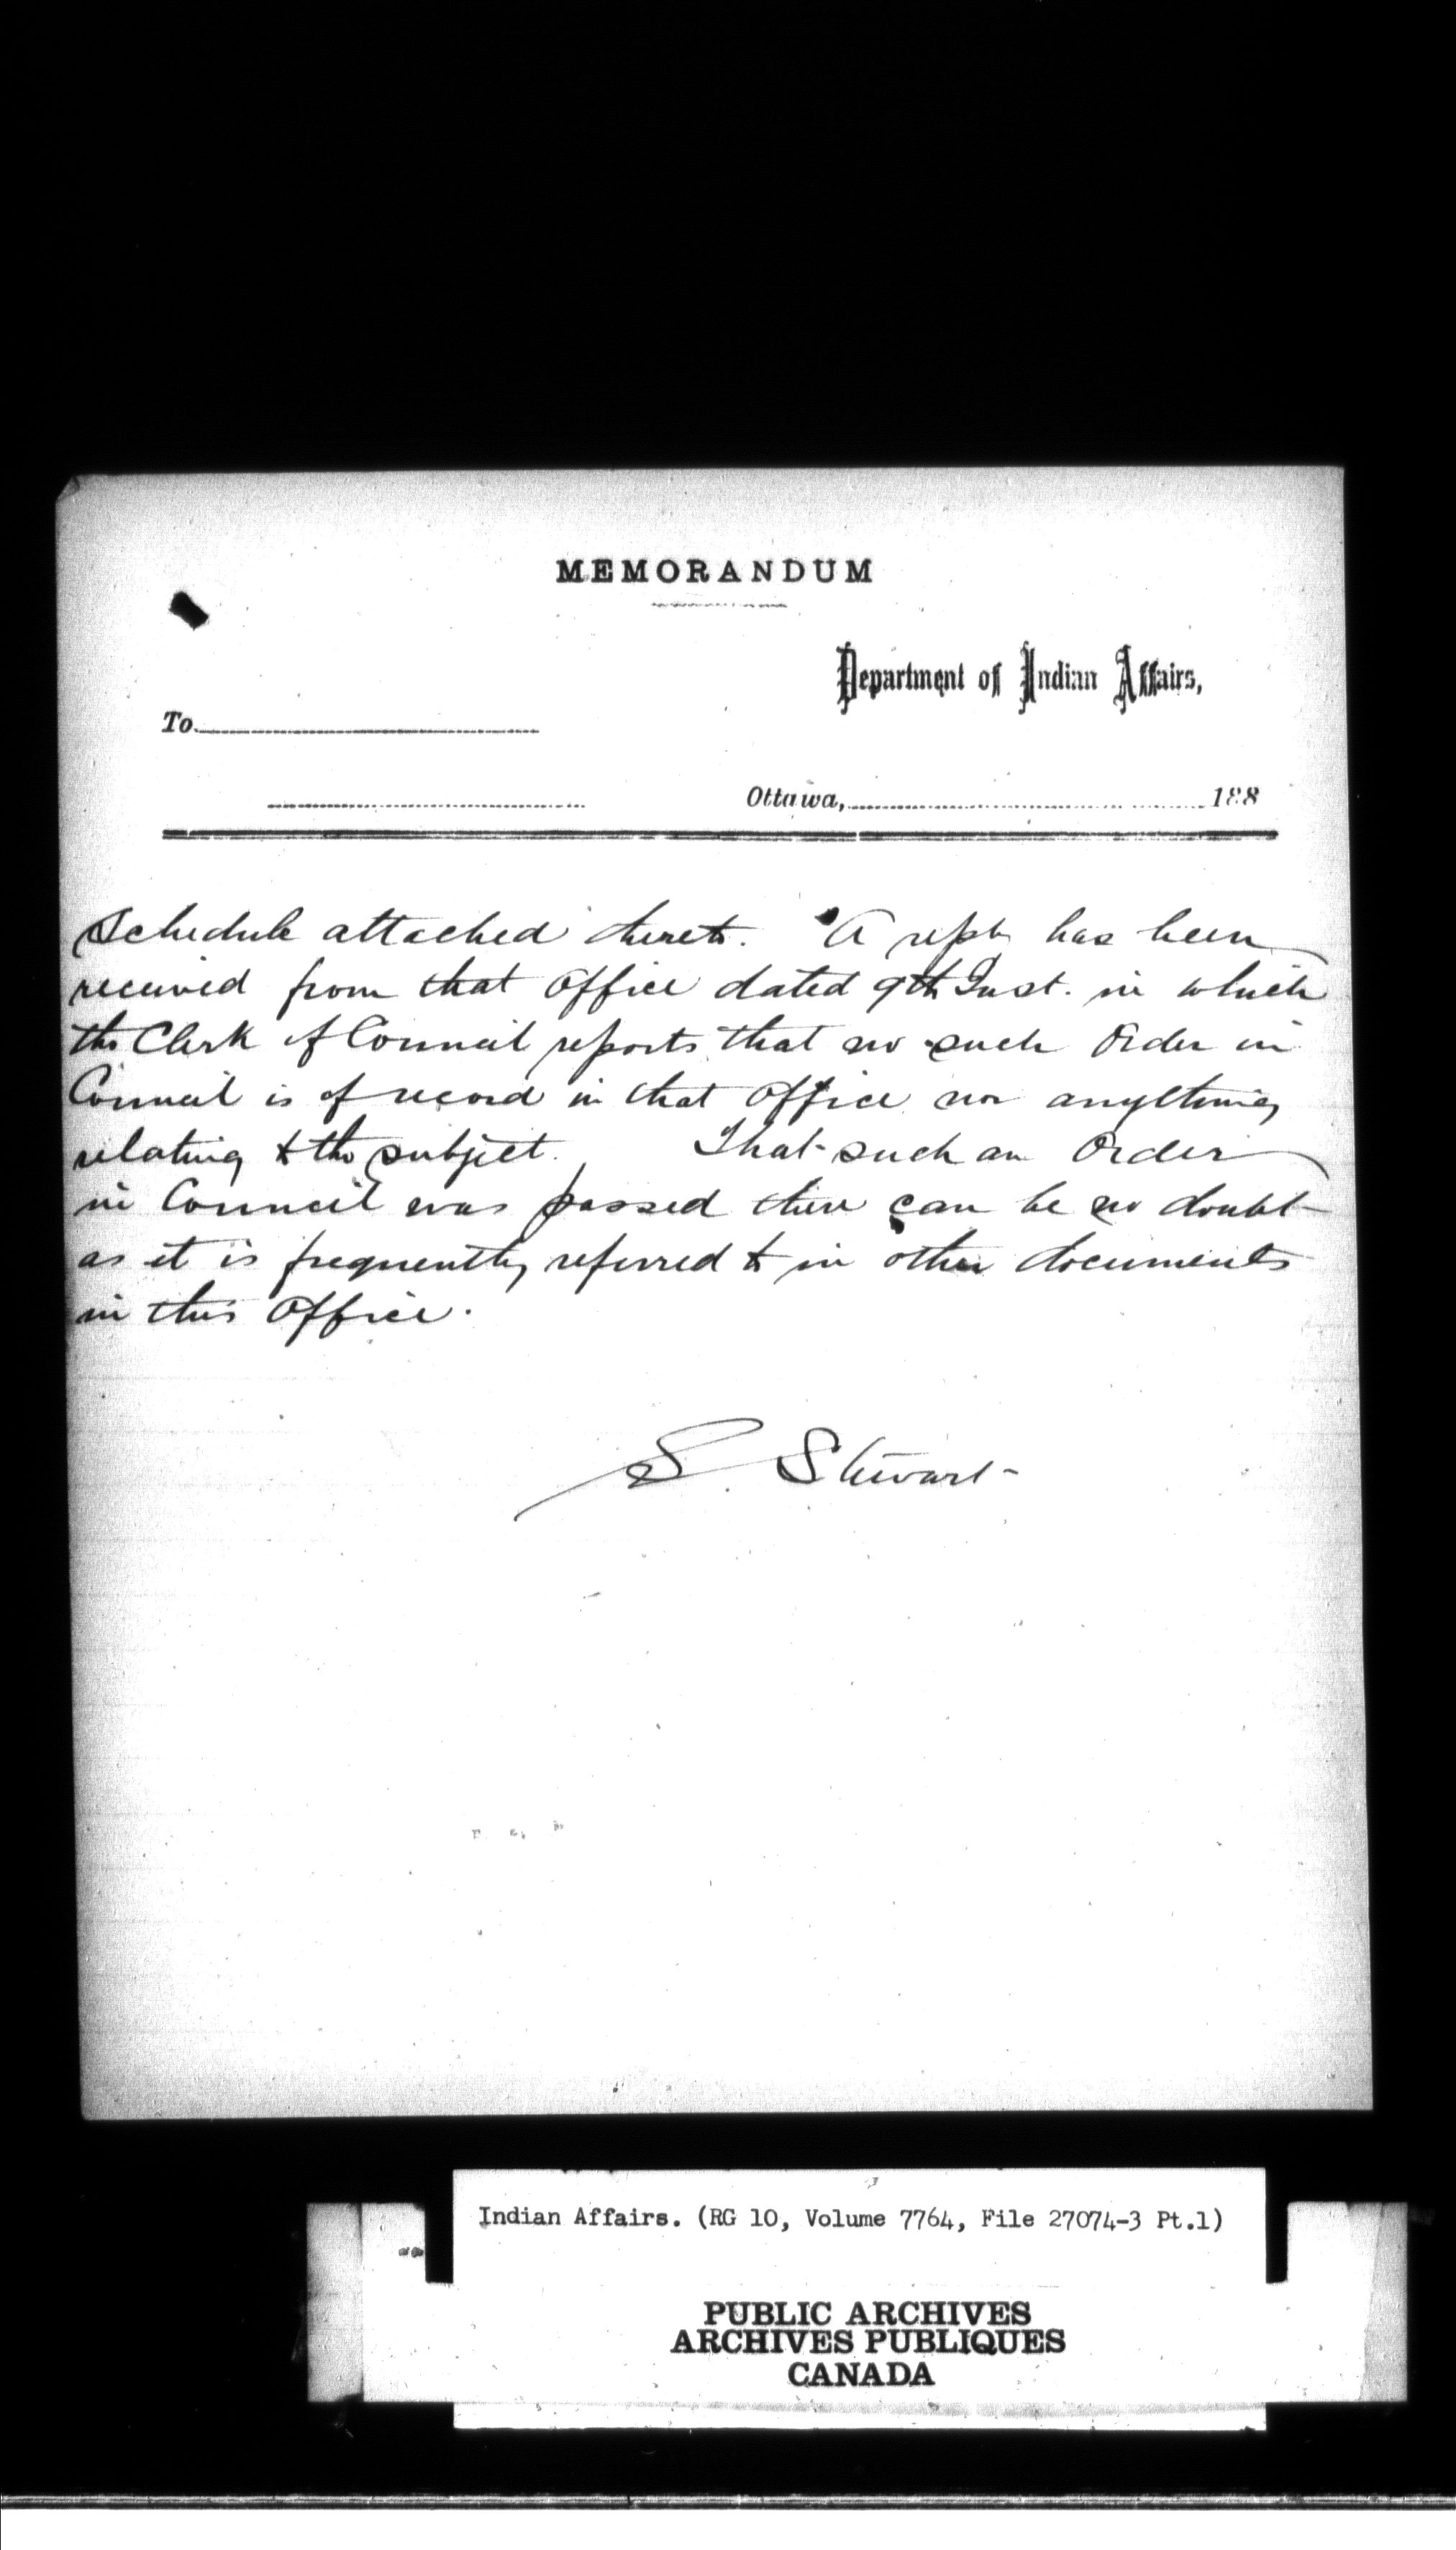 MEMORANDUM
Department of Indian Affairs,
To
Ottawa, 188
Schedule attached thereto. A reply has been
received from that Office dated 9th Inst. in which
the Clerk of Council reports that no such Order in
Council is of record in that Office nor anything
relating to the subject. That such an Order
in Council was passed there can be no doubt
as it is frequently referred to in other documents
in this Office.
S. Stewart
Indian Affairs. (RG 10, Volume 7764, File 27074-3 Pt.1)
PUBLIC ARCHIVES
ARCHIVES PUBLIQUES
CANADA